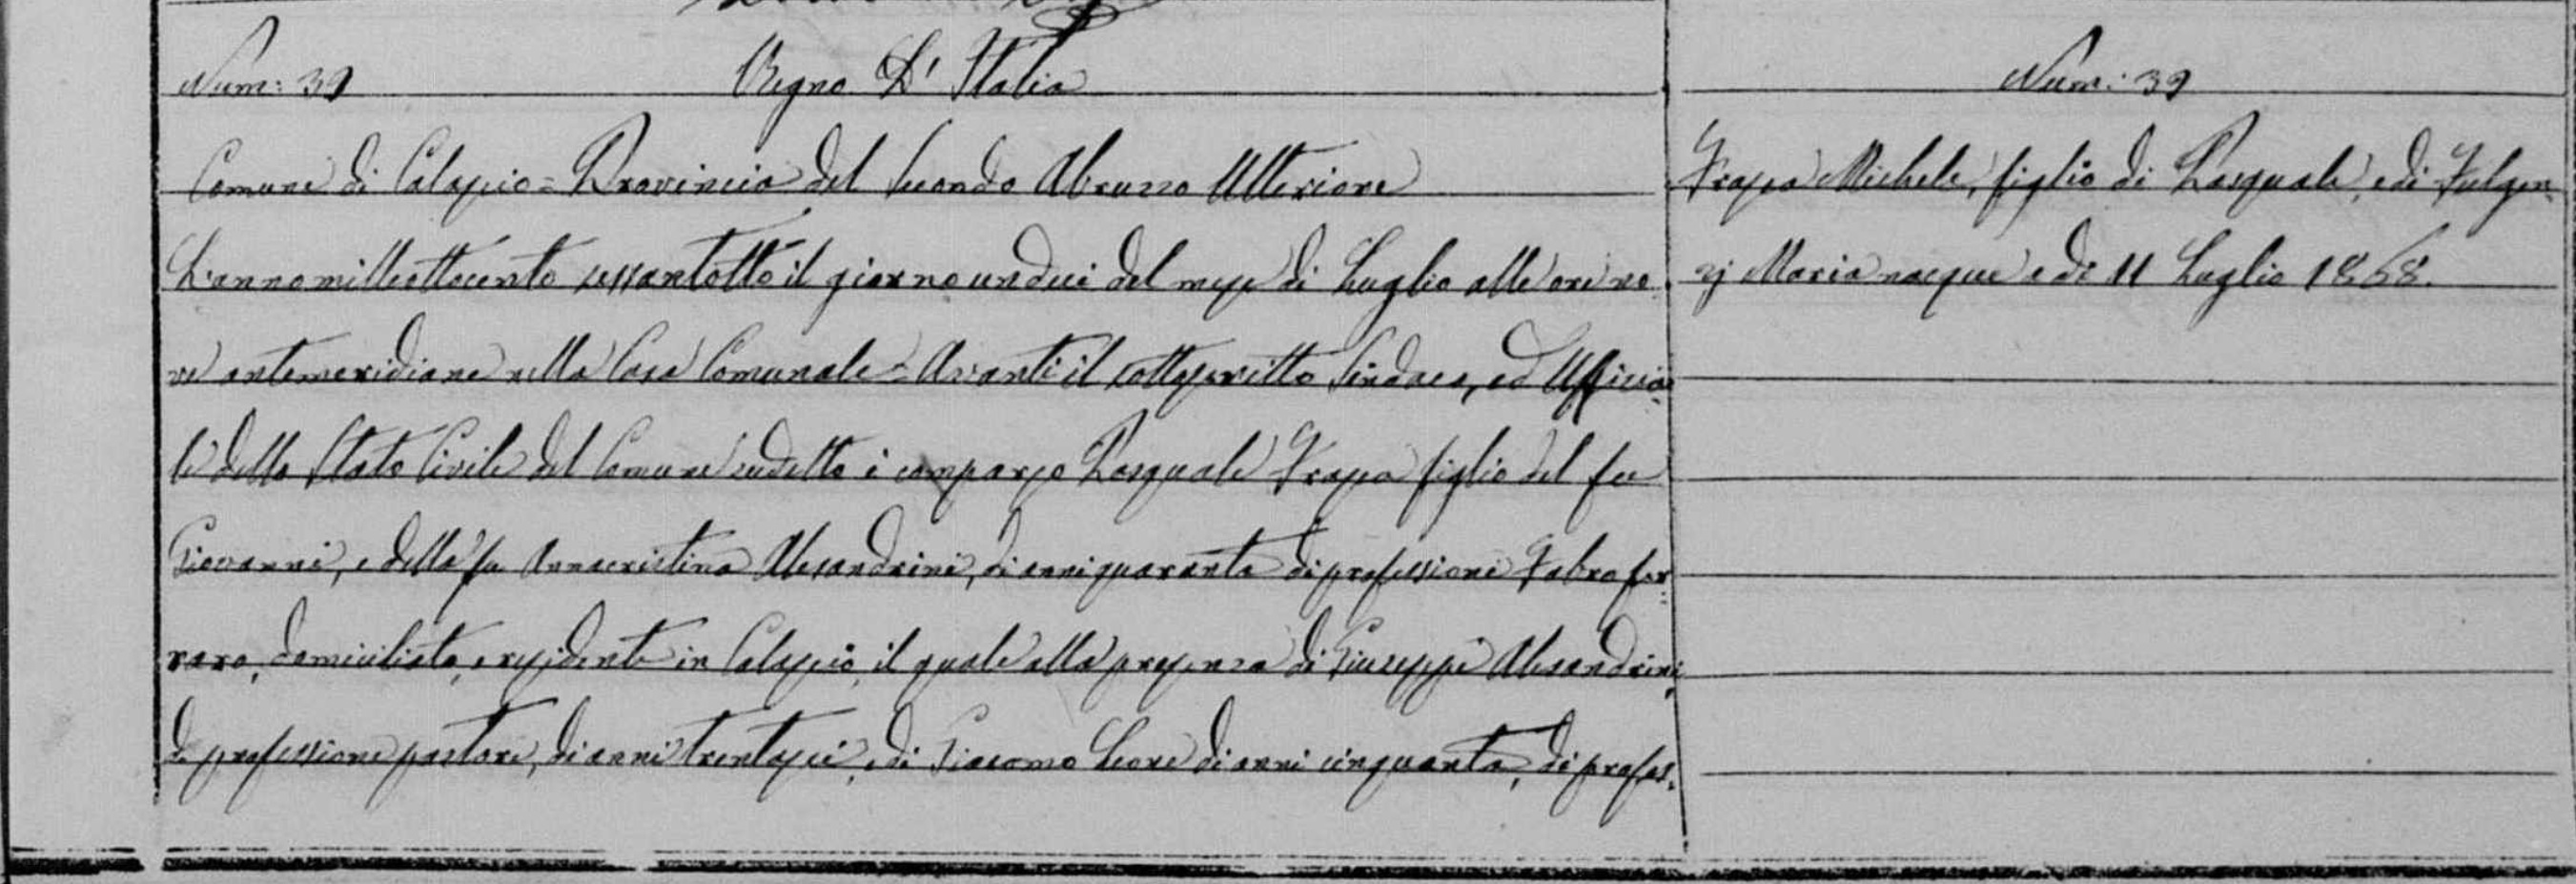 Num: 39 Regno D' Italia
Comune di Calascio = Provincia del Secondo Abruzzo Ulteriore
L'anno milleottocento sessantotto il giorno undici del mese di Luglio alle ore no
ve antemeridiane nella Casa Comunale = Avanti il sottoscritto Sindaco, ed Officia=
le dello Stato Civile del Comune sudetto è comparso Pasquale Frasca figlio del fu
Giovanni, e della fu Annacristina Alesandrini, di anni quaranta di professione Fabro fer=
raro, domiciliato, e residente in Calascio, il quale alla presenza di Giuseppe Alesandrini,
di professione pastore, di anni trentasei, e di Giacomo Leone di anni cinquanta, di profes=
Num: 39
Frasca Michele, figlio di Pasquale, e di Fulgen=
zj Maria nacque a dì 11 Luglio 1868.